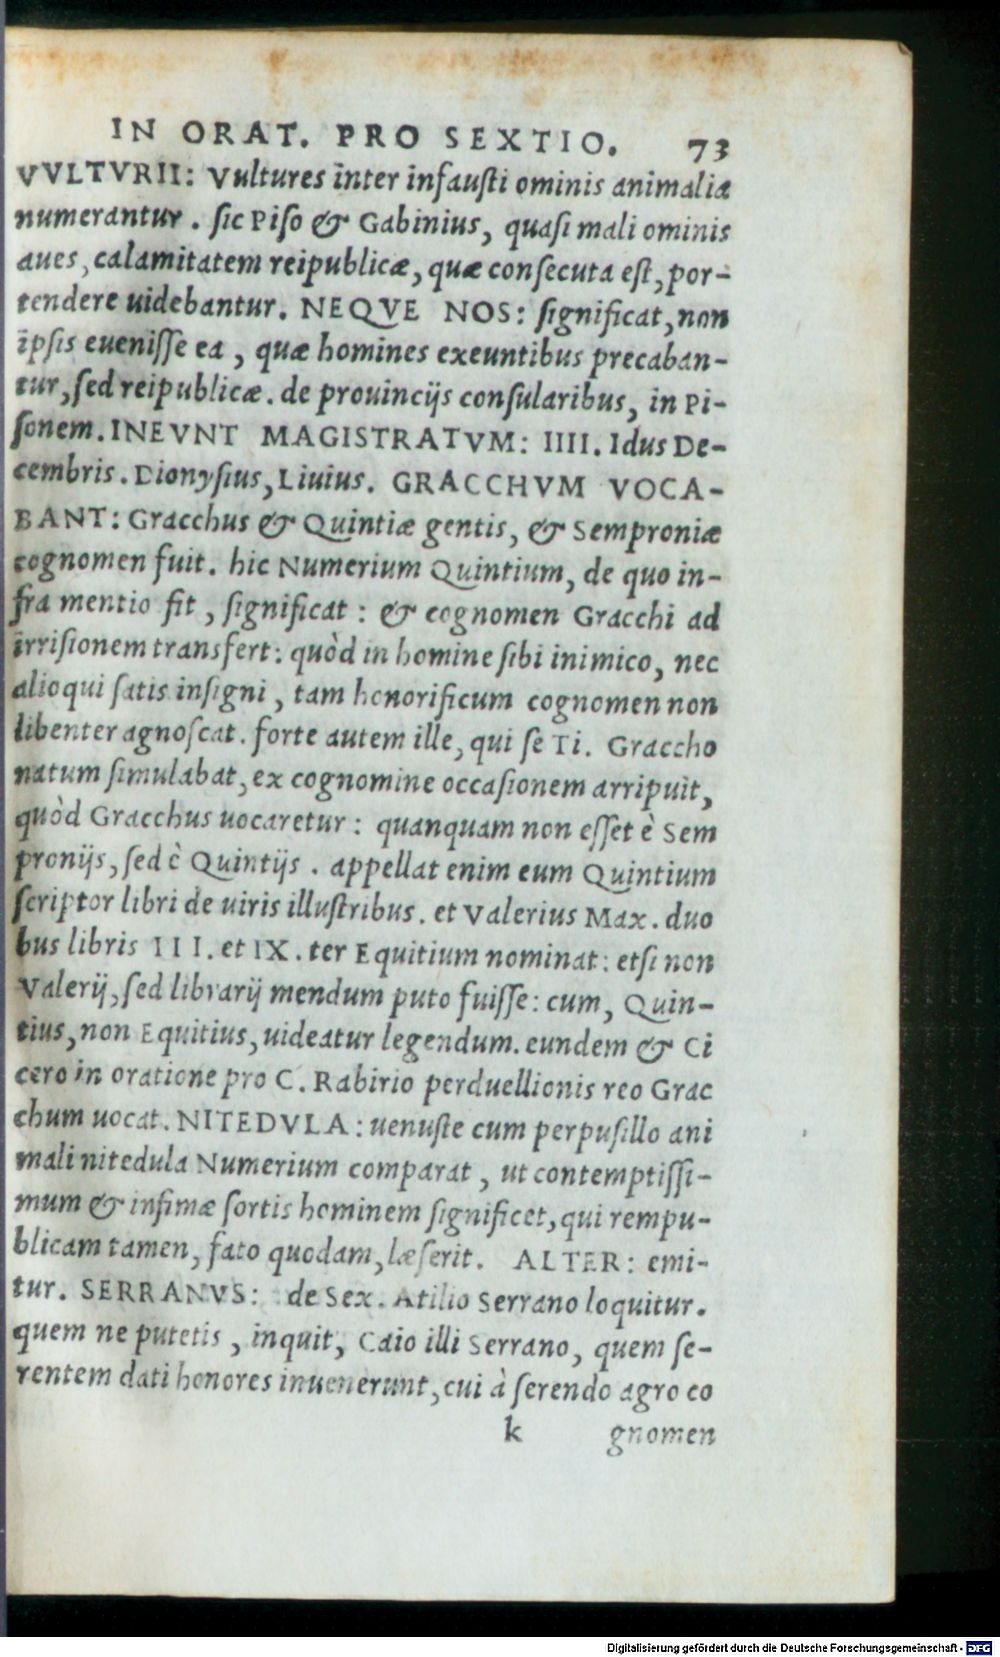 IN ORAT. PRO SEXTIO. 73
VVLTVRII: Vultures inter infausti ominis animalia
numerantur. sic Piso & Gabinius, quasi mali ominis
aues, calamitatem reipublicæ, quæ consecuta est, por-
tendere uidebantur. NEQVE NOS: significat, non
ipsis euenisse ea, quæ homines exeuntibus precaban-
tur, sed reipublicæ. de prouincijs consularibus, in Pi-
sonem. INEVNT MAGISTRATVM: IIII. Idus De-
cembris. Dionysius, Liuius. GRACCHVM VOCA-
BANT: Gracchus & Quintiæ gentis, & Semproniæ
cognomen fuit. hic Numerium Quintium, de quo in-
fra mentio fit, significat: & cognomen Gracchi ad
irrisionem transfert: quòd in homine sibi inimico, nec
alioqui satis insigni, tam honorificum cognomen non
libenter agnoscat. forte autem ille, qui se Ti. Graccho
natum simulabat, ex cognomine occasionem arripuit,
quòd Gracchus uocaretur: quanquam non esset è Sem
pronijs, sed è Quintijs. appellat enim eum Quintium
scriptor libri de uiris illustribus. et Valerius Max. duo
bus libris III. et IX. ter Equitium nominat: etsi non
Valerij, sed librarij mendum puto fuisse: cum, Quin-
tius, non Equitius, uideatur legendum. eundem & Ci
cero in oratione pro C. Rabirio perduellionis reo Grac
chum uocat. NITEDVLA: uenuste cum perpusillo ani
mali nitedula Numerium comparat, ut contemptissi-
mum & infimæ sortis hominem significet, qui rempu-
blicam tamen, fato quodam, læserit. ALTER: emi-
tur. SERRANVS: de Sex. Atilio Serrano loquitur.
quem ne putetis, inquit, Caio illi Serrano, quem se-
rentem dati honores inuenerunt, cui à serendo agro co
k gnomen
Digitalisierung gefördert durch die Deutsche Forschungsgemeinschaft - DFG